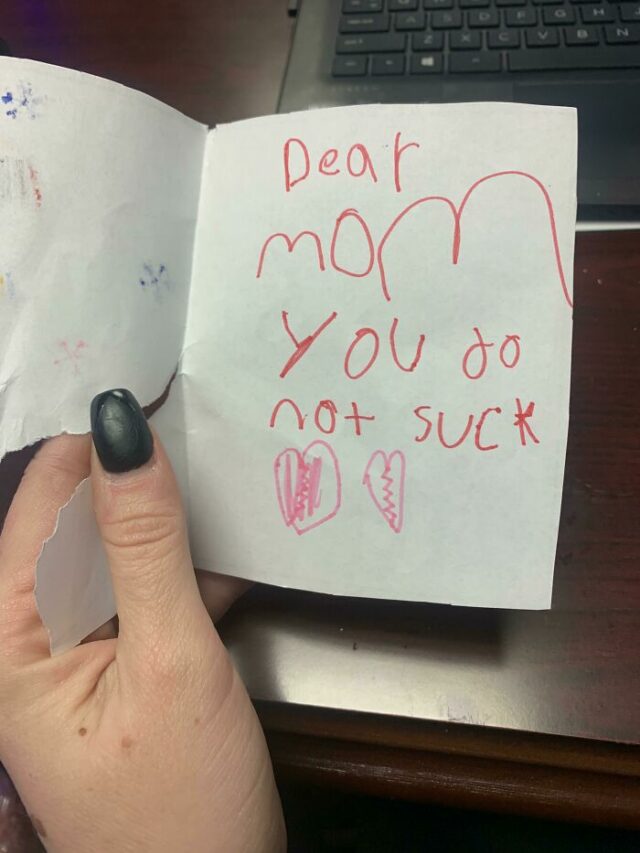 A S D F G H
Z X C V B N
Dear
mom
YOU do
not SUCK